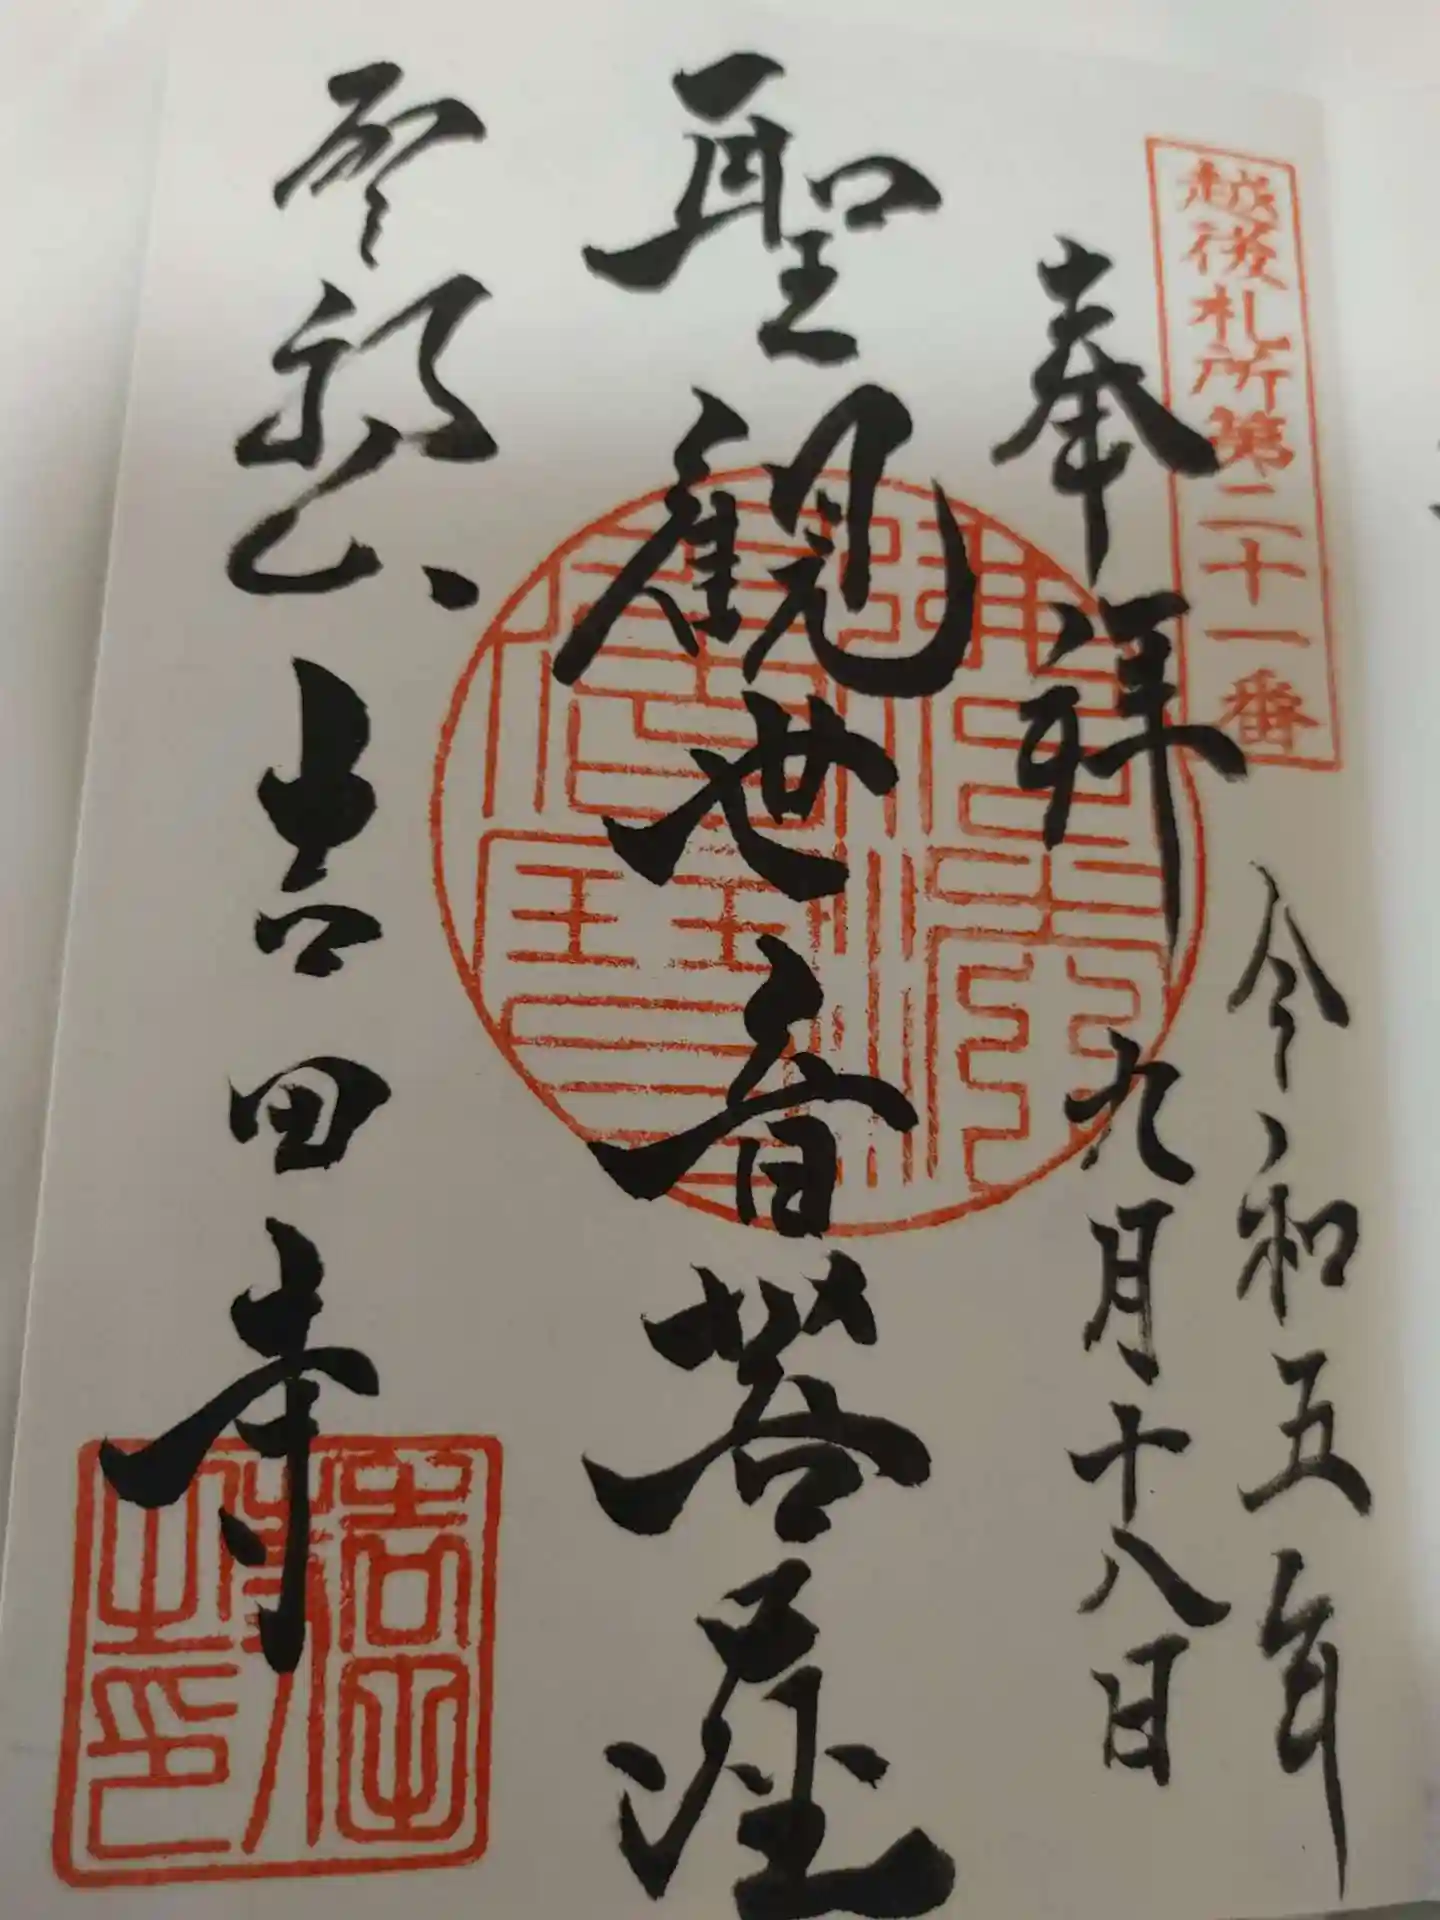 越後札所第二十一番
奉拝
令和五年
九月十八日
聖観世音菩薩
吉田寺